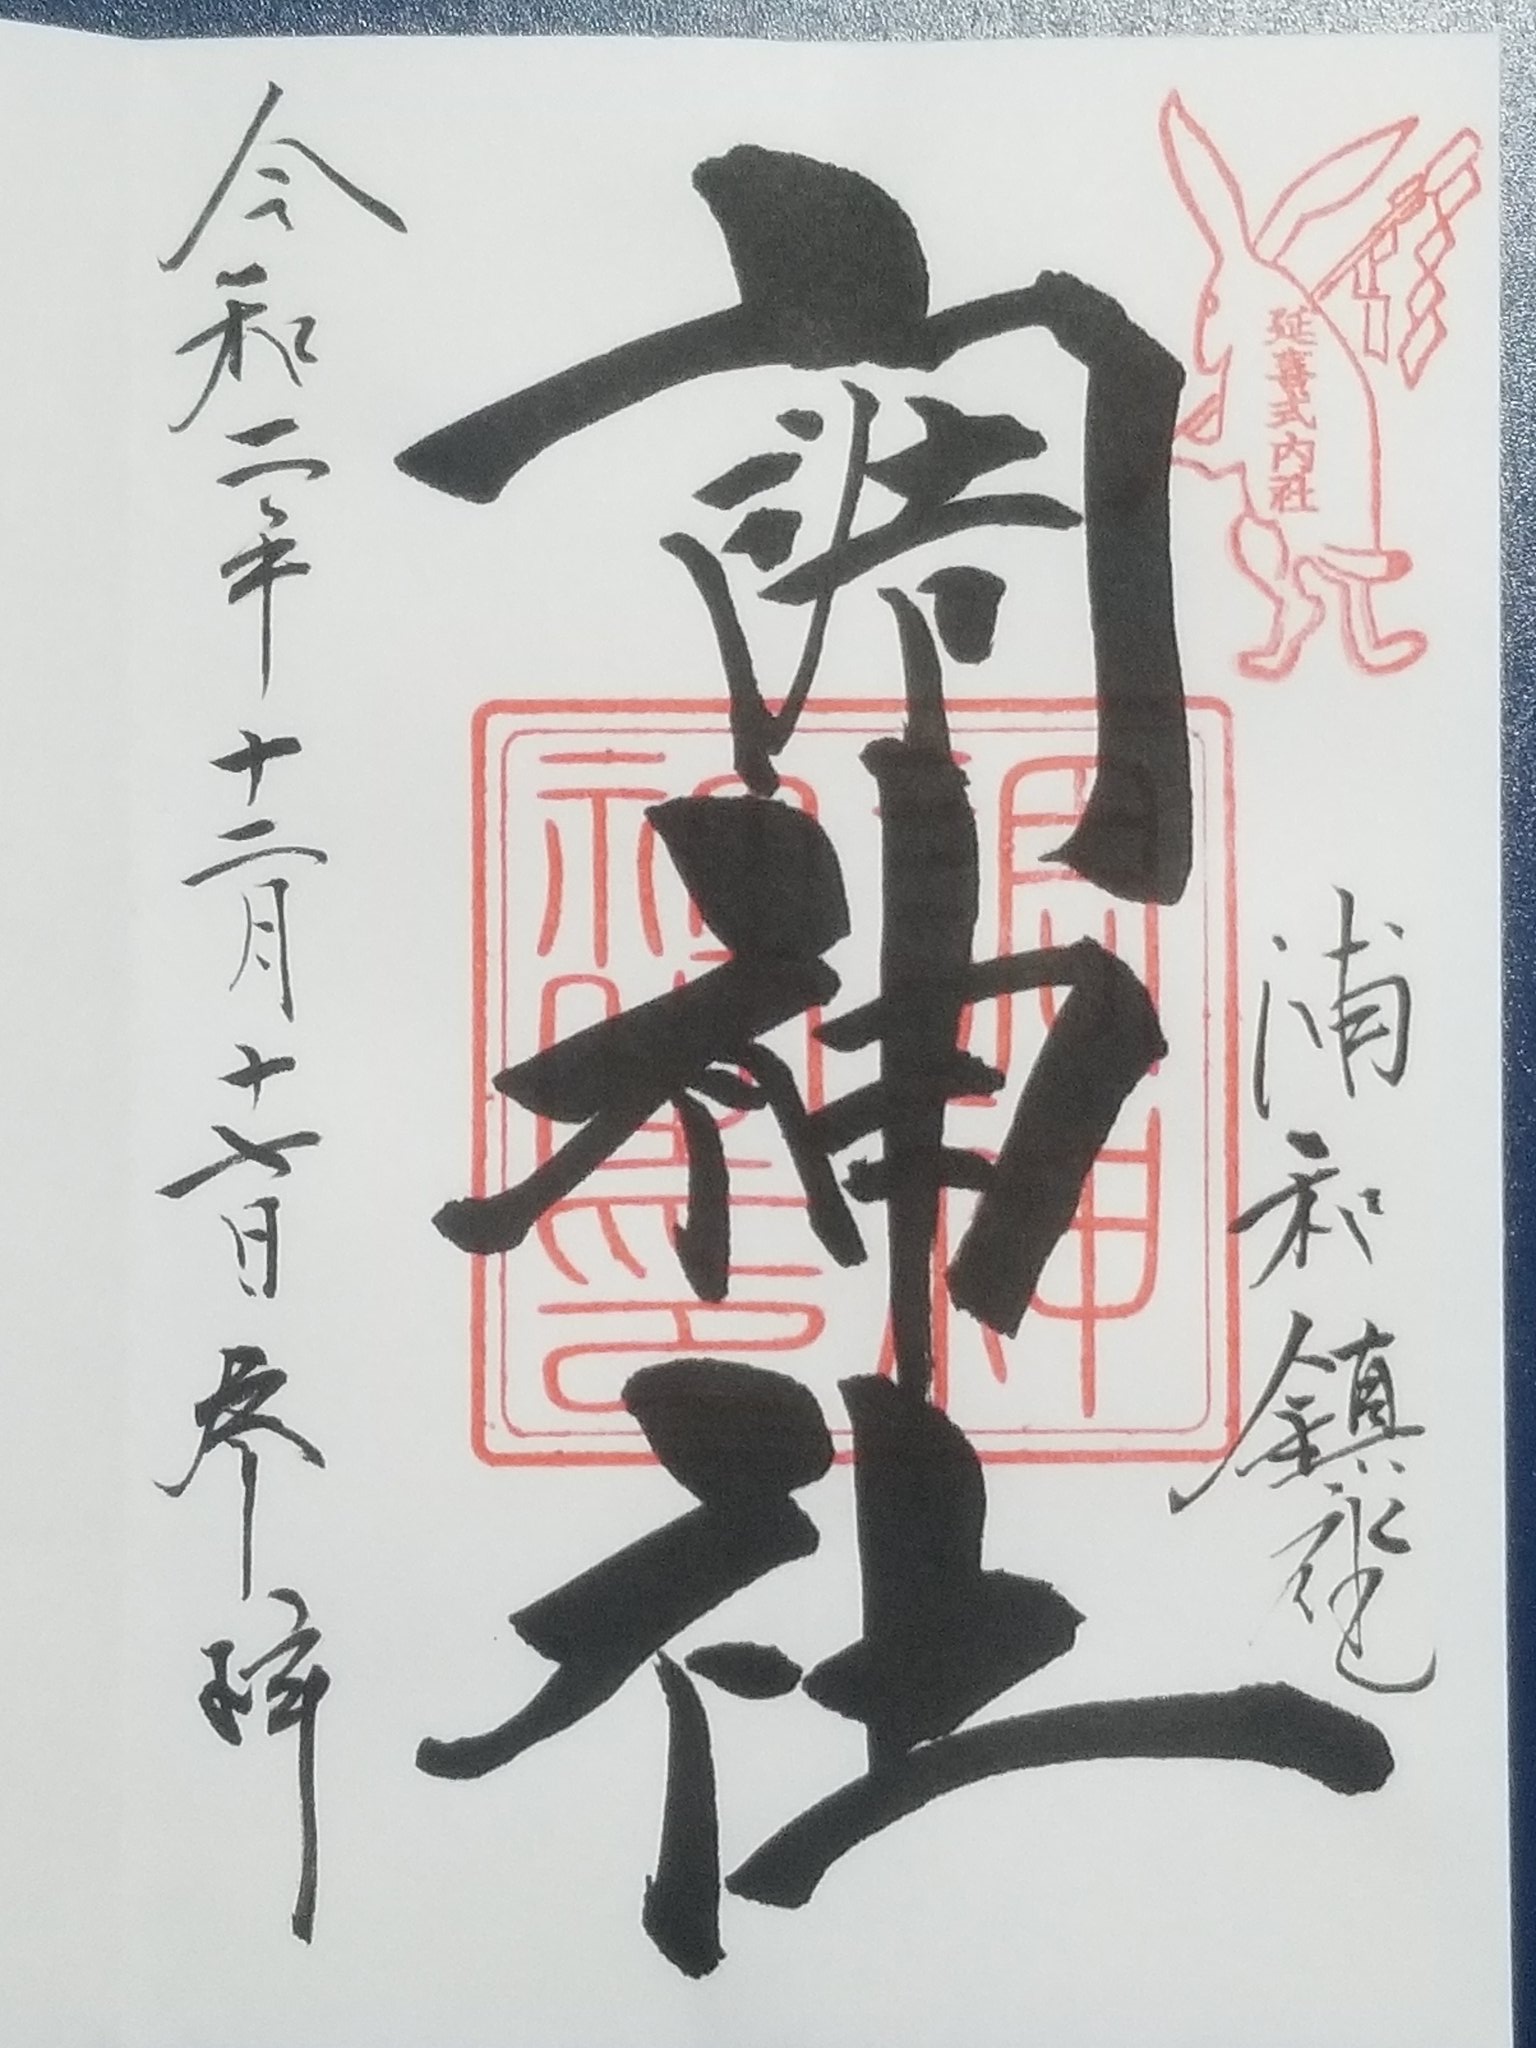 延喜式内社
浦和鎮座
調神社
調神社印
令和二年十二月十七日参拝